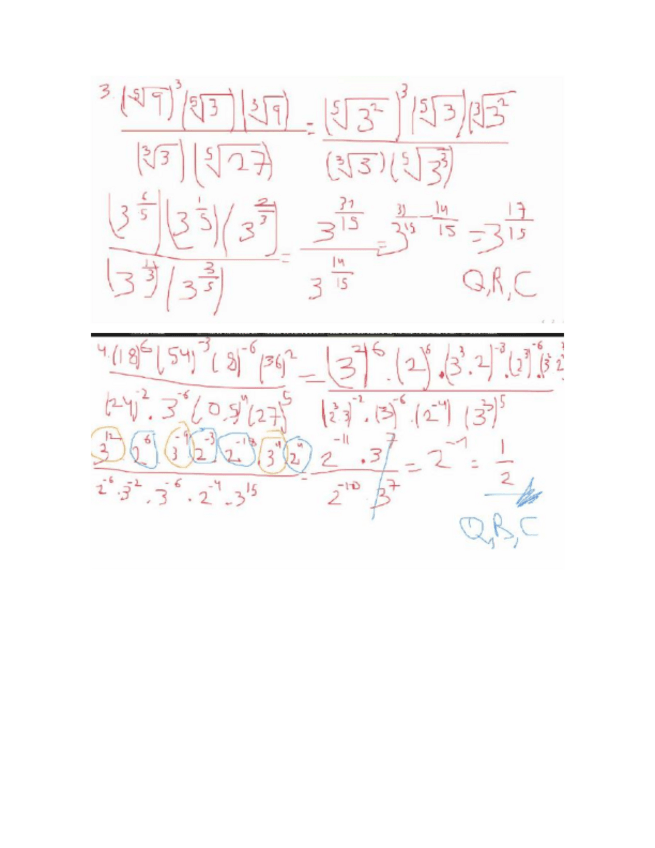 3. (⁵√9)³ (⁵√3) (³√9) / (³√3) (⁵√27) = (⁵√3²)³ (⁵√3) (³√3² / (³√3) (⁵√3³)
(3^(6/5)) (3^(1/5)) (3^(2/3)) / (3^(1/3)) (3^(3/5)) = 3^(31/15) / 3^(14/15) = 3^(31/15 - 14/15) = 3^(17/15)
Q,R,C
4. (18)⁶ (54)⁻³ (8)⁻⁶ (36)² / (24)⁻² · 3⁻⁶ (0.5)⁴ (27)⁵ = (3²)⁶ · (2)⁶ · (3³·2)⁻³ · (2³)⁻⁶ · (3² 2² / (2³·3)⁻² · (3)⁻⁶ · (2⁻⁴) (3³)⁵
3¹² 2⁶ 3⁻⁹ 2⁻³ 2⁻¹⁸ · 3⁴ 2⁴ / 2⁻⁶ · 3⁻² · 3⁻⁶ · 2⁻⁴ · 3¹⁵ = 2⁻¹¹ · 3⁷ / 2⁻¹⁰ 3⁷ = 2⁻¹ = 1/2
Q,R,C